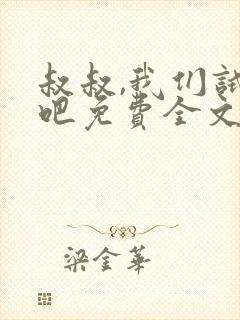 叔叔,我们试
吧免费全文
梁金华